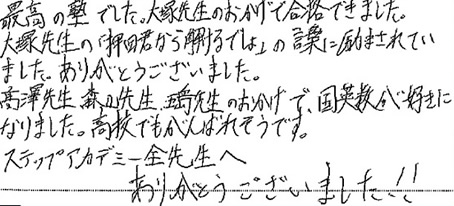 最高の塾でした。大塚先生のおかげで合格できました。
大塚先生の「押田君なら開けるでしょ」の言葉に励まされてい
ました。ありがとうございました。
高澤先生、森山先生、先生のおかげで、国英数が好きに
なりました。高校でもがんばれそうです。
ステップアカデミー全先生へ
ありがとうございました!!